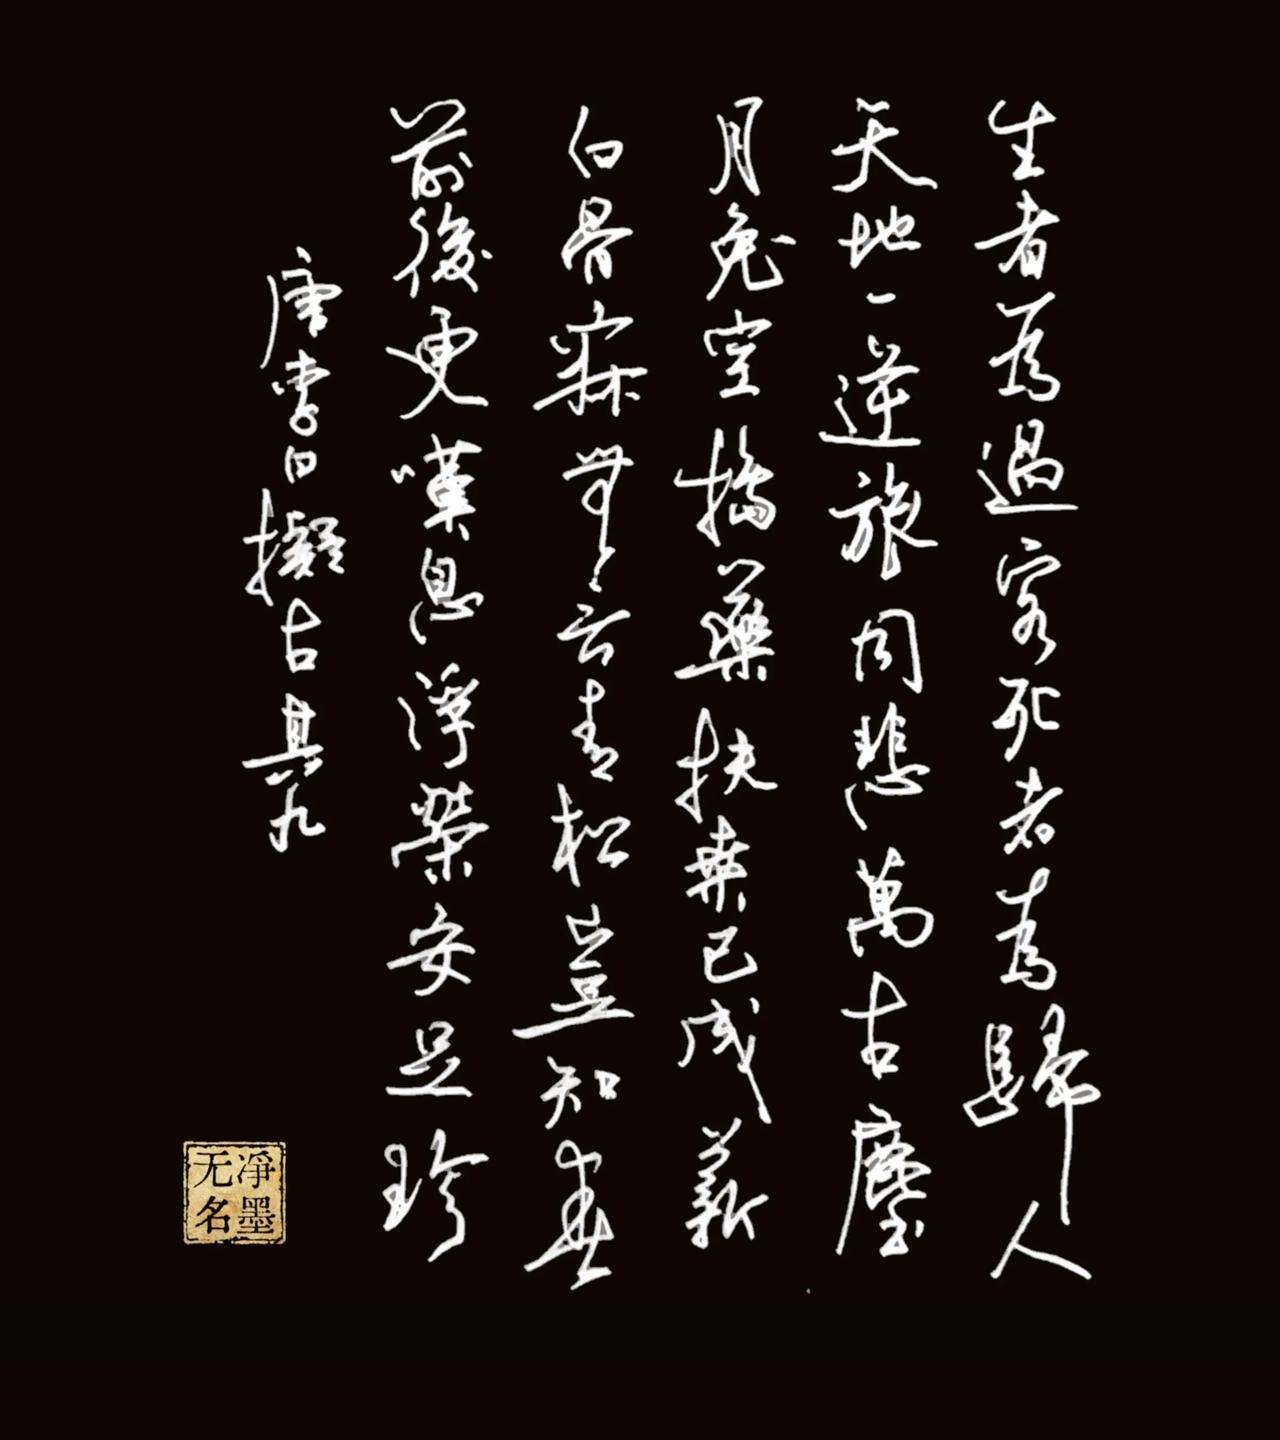 生者為過客死者為歸人
天地一逆旅同悲萬古塵
月兔空搗藥扶桑已成薪
白骨寂無言青松豈知春
前後更嘆息浮榮安足珍
唐李白擬古其九
凈墨
无名